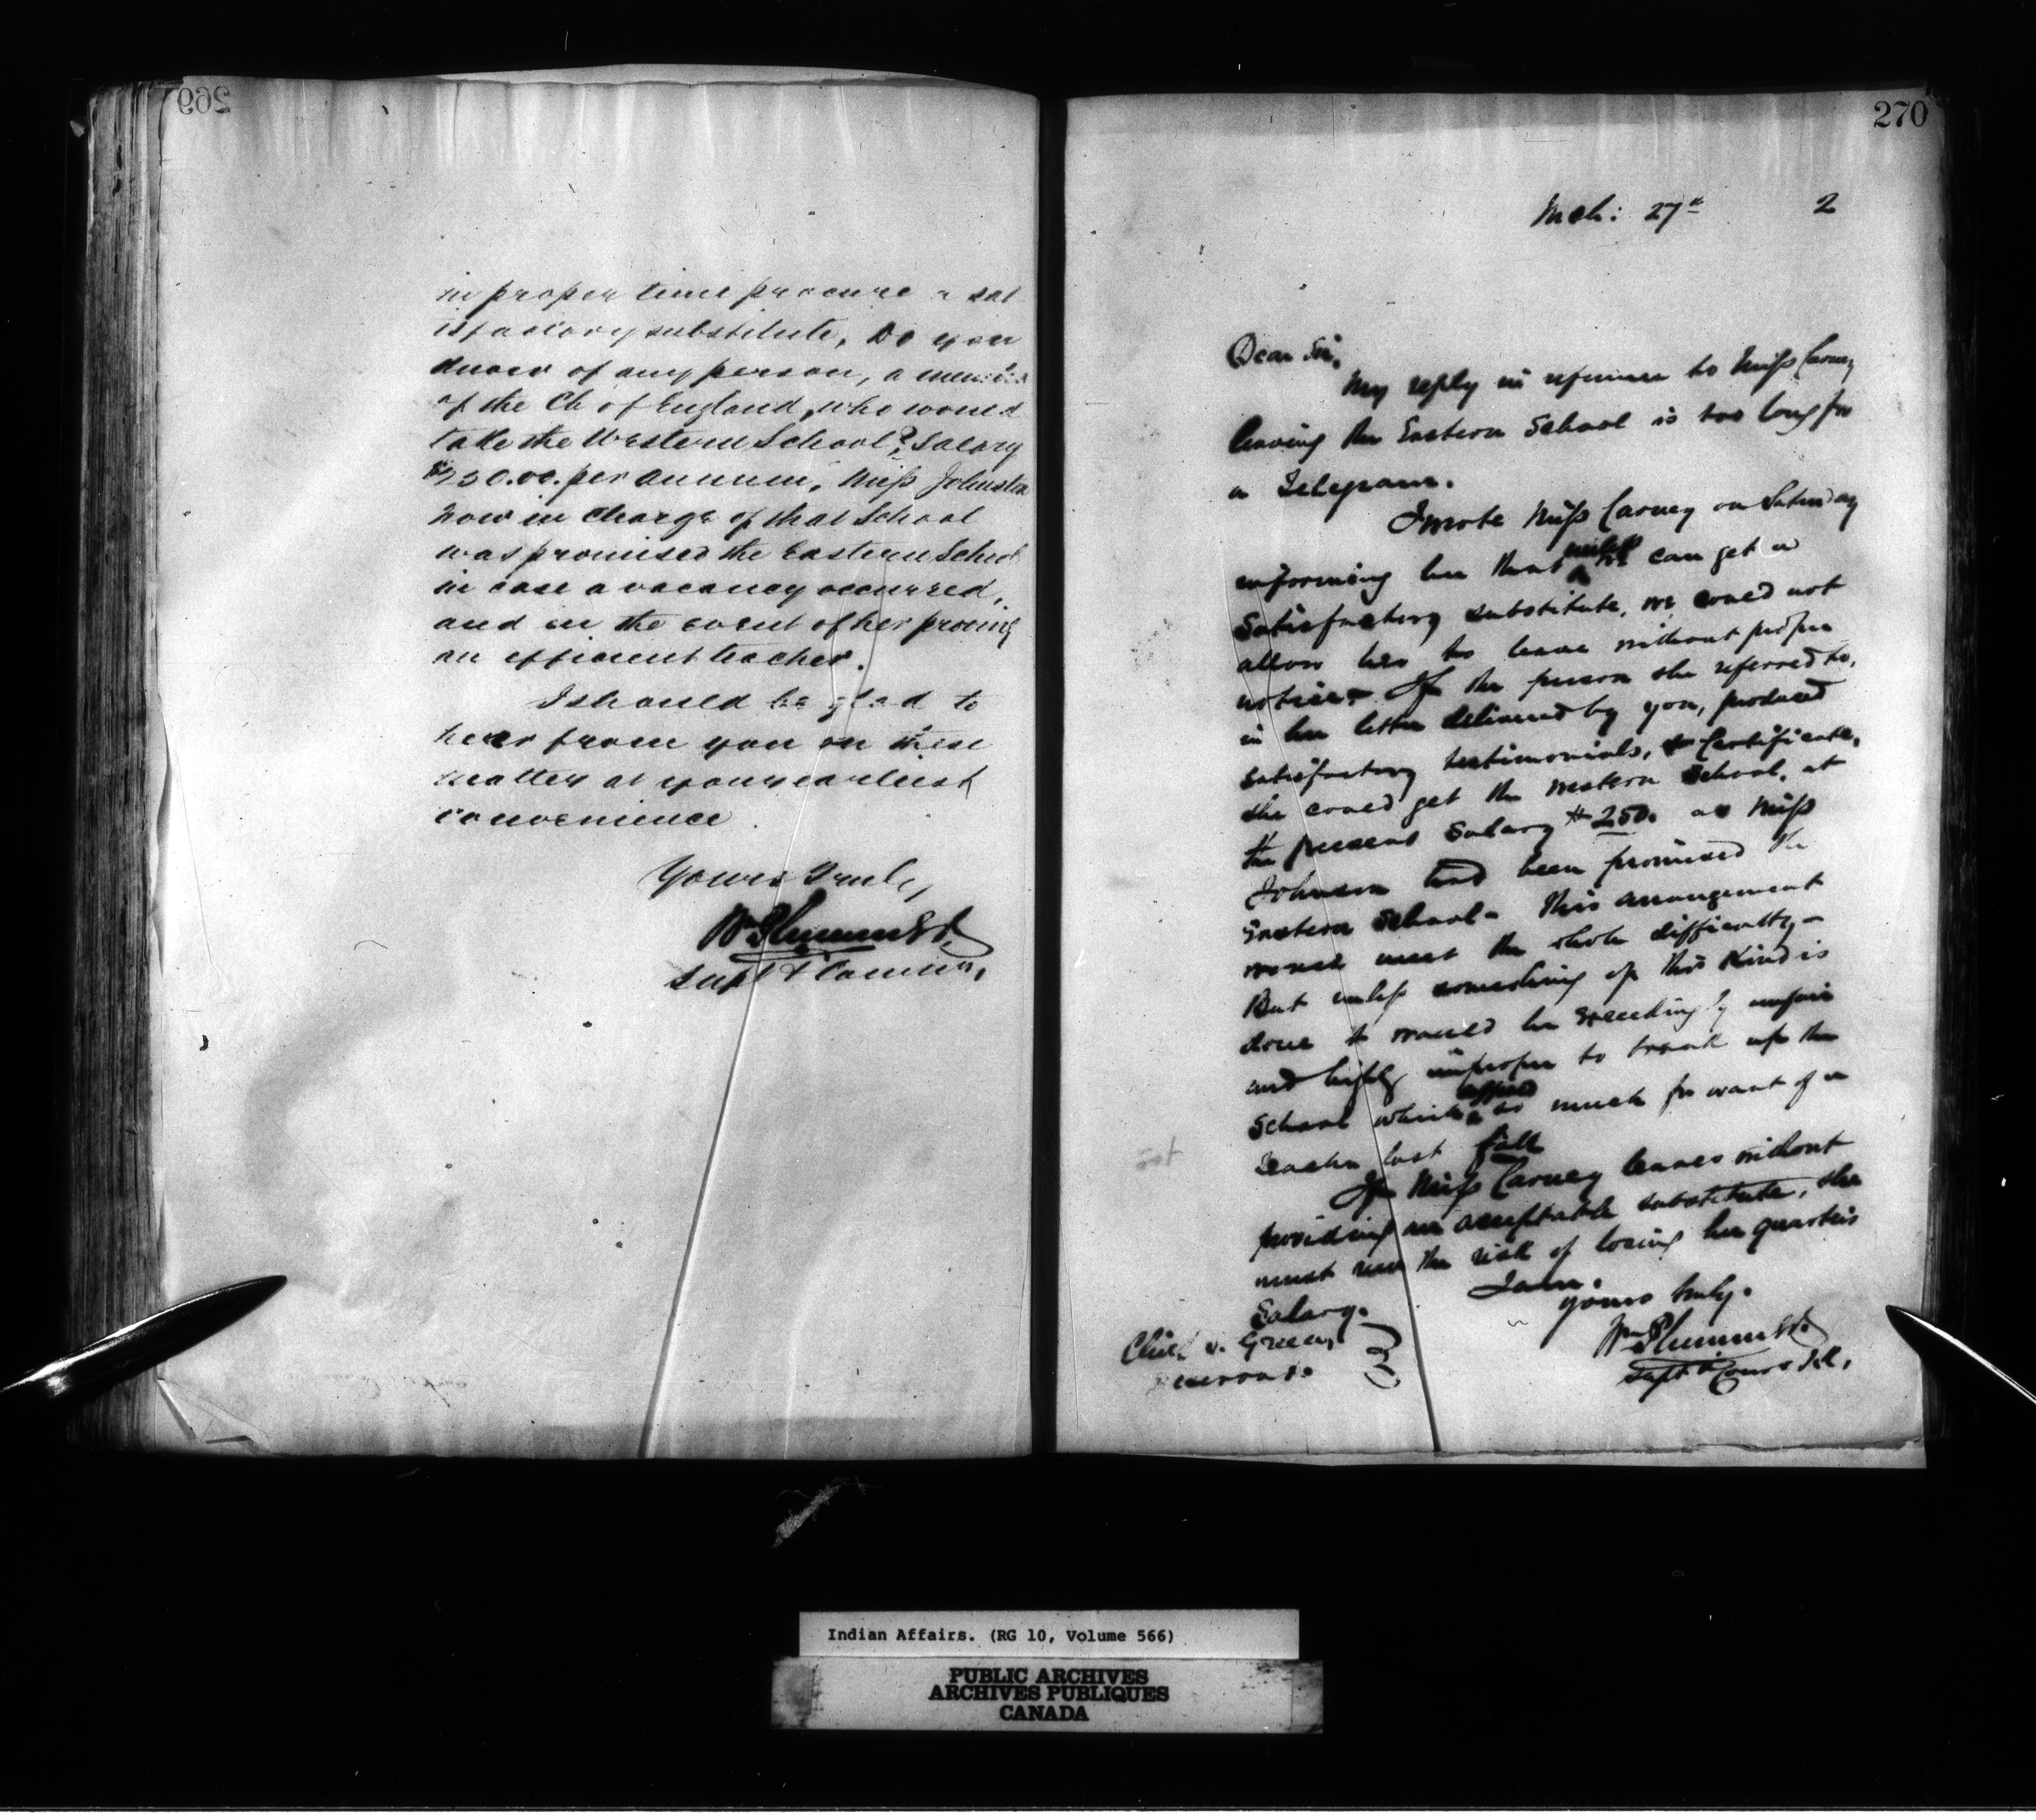 269
in proper time procure a sat
isfactory substitute, Do you
know of any person, a member
of the Ch of England, who would
take the Western School? Salary
$250.00. per annum, Miss Johnston
now in charge of that School
was promised the Eastern School
in case a vacancy occurred,
and in the event of her proving
an efficient teacher.
I should be glad to
hear from you on these
matters at your earliest
convenience
Yours Truly,
Wm Plummer
Supt & Commr,
270
Mch: 27th 2
Dear Sir,
My reply in reference to Miss Carney
leaving the Eastern School is too long for
a Telegram.
I wrote Miss Carney on Saturday
informing her that until we can get a
satisfactory substitute, we could not
allow her to leave without proper
notice. If the person she referred to,
in her letter delivered by you, produced
satisfactory testimonials, & Certificate,
she could get the Western School, at
the present Salary $250. as Miss
Johnson had been promised the
Eastern School. This arrangement
would meet the whole difficulty –
But unless something of this Kind is
done it would be exceedingly unfair
and highly improper to break up the
School which suffered so much for want of a
teacher last fall
If Miss Carney leaves without
providing an acceptable substitute, she
must run the risk of losing her quarter's
Salary.
I am.
yours truly.
Wm Plummer
Supt & Commr
Chief W. Green,
Indian Affairs. (RG 10, Volume 566)
PUBLIC ARCHIVES
ARCHIVES PUBLIQUES
CANADA